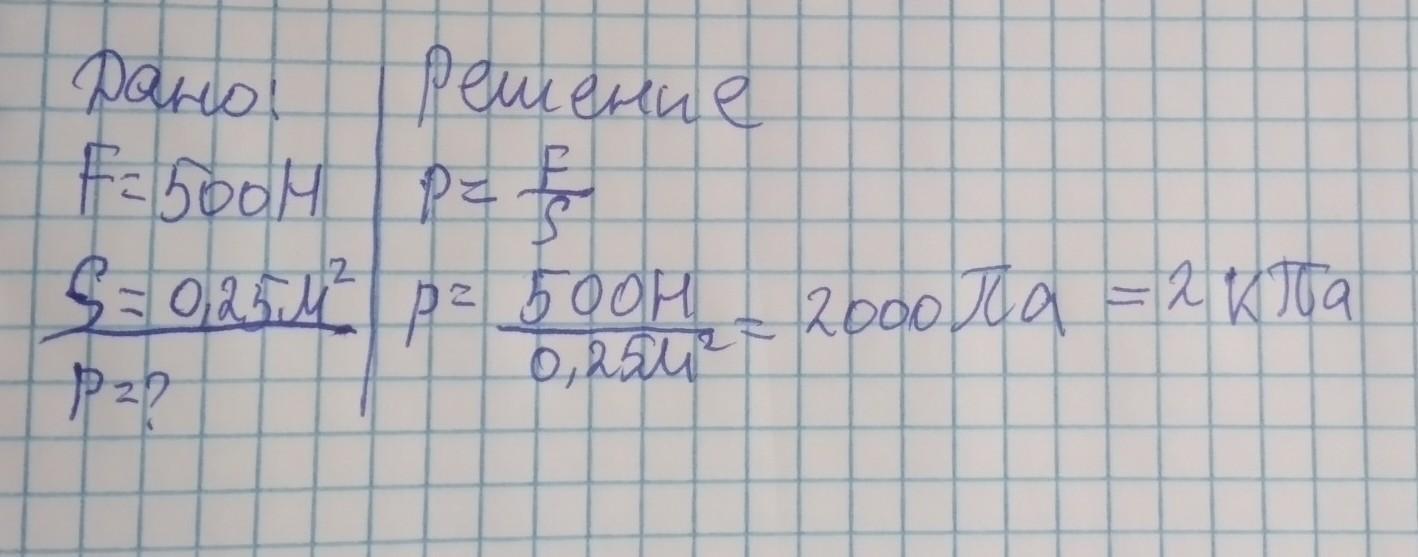 Дано:
F=500Н
S=0,25м²
p=?
Решение
p= F/S
p= 500Н/0,25м² = 2000 Па = 2 кПа